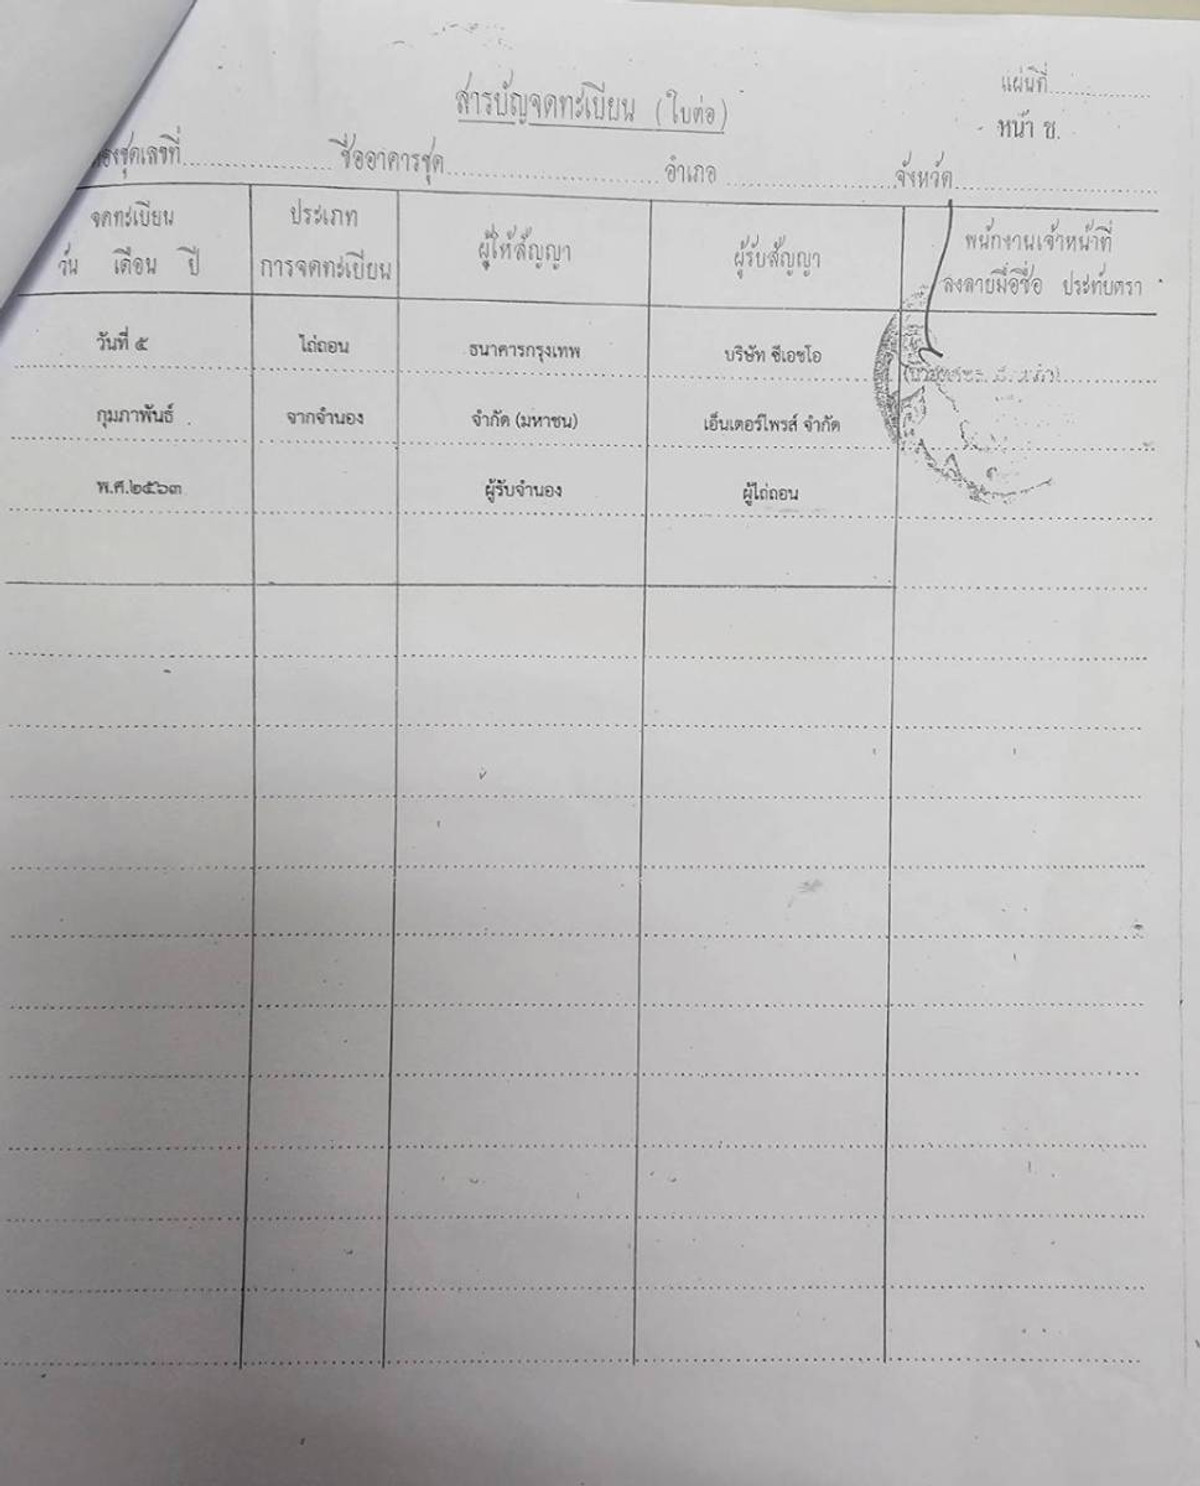 สารบัญจดทะเบียน (ใบต่อ)
แผ่นที่
หน้า ช.
ห้องชุดเลขที่ ชื่ออาคารชุด อำเภอ จังหวัด
จดทะเบียน
วัน เดือน ปี
ประเภท
การจดทะเบียน
ผู้ให้สัญญา
ผู้รับสัญญา
พนักงานเจ้าหน้าที่
ลงลายมือชื่อ ประทับตรา
วันที่ ๕
กุมภาพันธ์
พ.ศ.๒๕๖๓
ไถ่ถอน
จากจำนอง
ธนาคารกรุงเทพ
จำกัด (มหาชน)
ผู้รับจำนอง
บริษัท ซีเอชโอ
เอ็นเตอร์ไพรส์ จำกัด
ผู้ไถ่ถอน